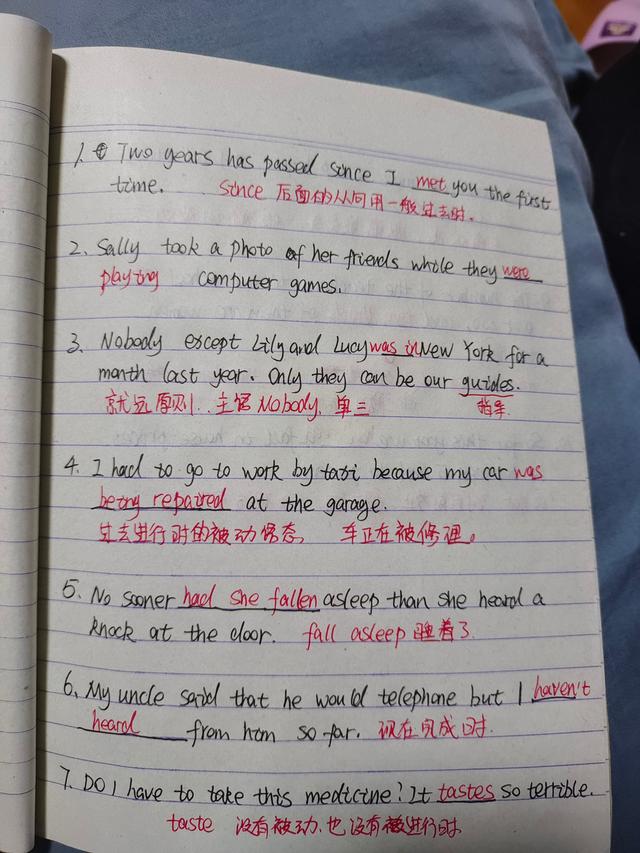 1. Two years has passed since I met you the first
time. since 后面的从句用一般过去时.
2. Sally took a photo of her friends while they were
playing computer games.
3. Nobody except Lily and Lucy was in New York for a
month last year. Only they can be our guides.
就远原则. 主语 Nobody, 单三 指导
4. I had to go to work by taxi because my car was
being repaired at the garage.
过去进行时的被动语态, 车正在被修理。
5. No sooner had she fallen asleep than she heard a
knock at the door. fall asleep 睡着了
6. My uncle said that he would telephone but I haven't
heard from him so far. 现在完成时.
7. Do I have to take this medicine? It tastes so terrible.
taste 没有被动, 也没有进行时